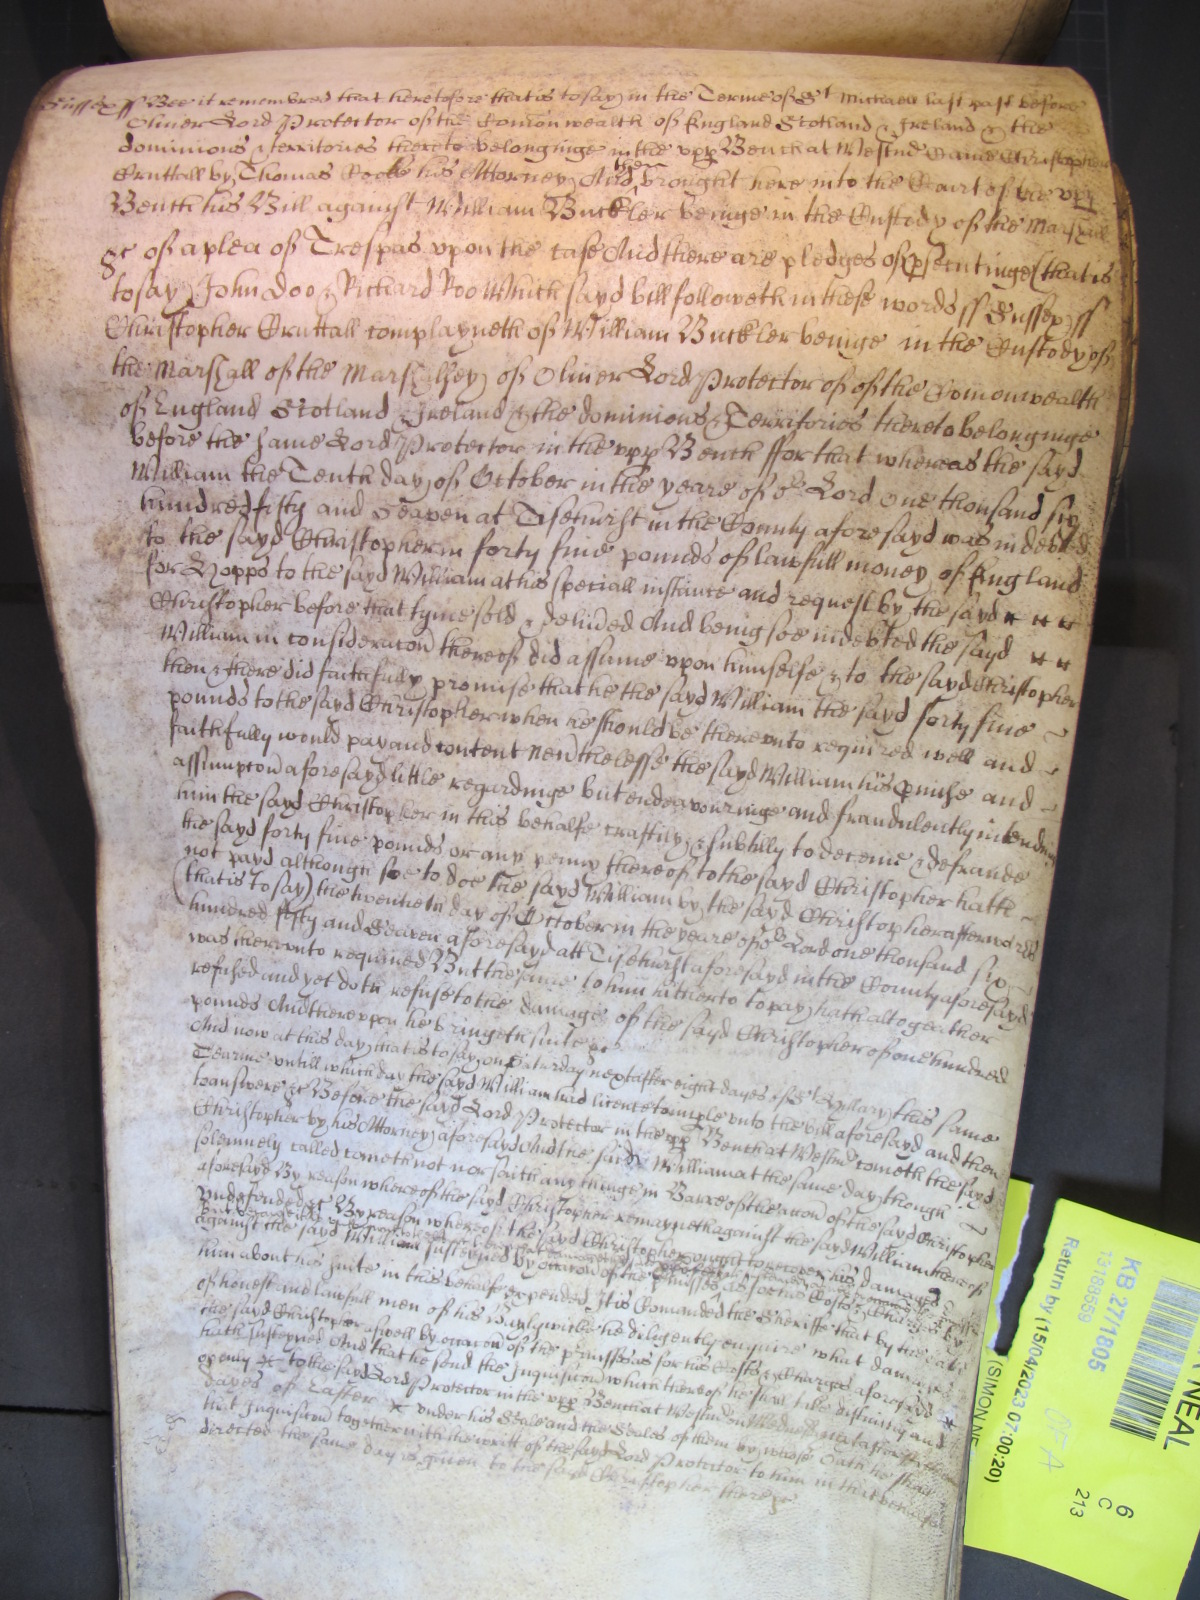 Sussex ss Bee it remembred that heretofore that is to say in the Terme of St Michaell last past before
Oliver Lord Protector of the Comonwealth of England Scotland & Ireland & the
dominions & territories thereto belonginge in the upp Bench at Westm̃ Came Christopher
Cruttall by Thomas Cooke his Attorney And then brought here into the Court of the upp
Bench his Bill against William Buckler beinge in the Custody of the Marshall
&c of a plea of Trespas upon the case And there are pledges of psecutinge (that is
to say) John Doo & Richard Roo Which sayd bill followeth in these words ss Sussex ss
Christopher Cruttall complayneth of William Buckler beinge in the Custody of
the Marshall of the Marshalsey of Oliver Lord Protector of of the Comonwealth
of England Scotland & Ireland & the dominions & Territories thereto belonginge
before the same Lord Protector in the upp Bench ffor that whereas the sayd
William the Tenth day of October in the yeare of or Lord One thousand six
hundred fifty and Seaven at Tisehurst in the County aforesayd was indebted
to the sayd Christopher in forty five pounds of lawfull money of England
for Hopps to the sayd William at his speciall instance and request by the sayd
Christopher before that tyme sold & delived And being soe indebted the sayd
William in consideracon thereof did assume upon himselfe & to the sayd Christopher
then & there did faithfully promise that he the sayd William the sayd forty five
pounds to the sayd Christopher when he should be thereunto required well and
faithfully would pay and content Nevthelesse the sayd William his pmise and
assumpcon aforesayd little regardinge but endeavouringe and fraudulently intendinge
him the sayd Christopher in this behalfe craftily & subtilly to deceive & defraude
the sayd forty five pounds or any penny thereof to the sayd Christopher hath
not payd although soe to doe the sayd William by the sayd Christopher afterwards
(that is to say) the twentieth day of October in the yeare of or Lord one thousand six
hundred fifty and Seaven aforesayd att Tisehurst aforesayd in the County aforesayd
was thereunto required But the same to him hitherto to pay hath altogeather
refused and yet doth refuse to the damage of the sayd Christopher of one hundred
pounds And thereupon he bringeth suite &c
And now at this day that is to say on Saturday next after eight dayes of St Hillary this same
Tearme untill which day the sayd William had licence to imple unto the bill aforesayd and then
to answere &c Before the sayd Lord Protector in the upp Bench at Westm̃ cometh the sayd
Christopher by his Attorney aforesayd And the said William at the same day though
solemnely called cometh not nor saith any thinge in Barre of the accon of the sayd Christopher
aforesayd By reason whereof the sayd Christopher remayneth against the sayd William thereof
undefended &c By reason whereof the sayd Christopher ought to recover his damages
against the sayd William susteyned by occacon of the pmisses
him about his suite in this behalfe expended It is Comanded the Sheriffe that by the oath
of honest and lawfull men of his Baylywicke he diligently enquire what damages
the sayd Christopher aswell by occacon of the pmisses as for his Costs & Charges aforesayd
hath susteyned And that he send the Inquisicon which thereof he shall take distinctly and
openly to the sayd Lord Protector in the upp Bench at Westm̃ on Wednesday next after
dayes of Easter under his Seale and the Seales of them by whose Oath he shall
that Inquisicon togeather with the writt of the sayd Lord Protector to him in that behalfe
directed the same day is given to the sayd Christopher there &c
NEAL
KB 27/1805
13188559
Return by (15/04/2023 07:00:20)
(SIMON NE
6
C
213